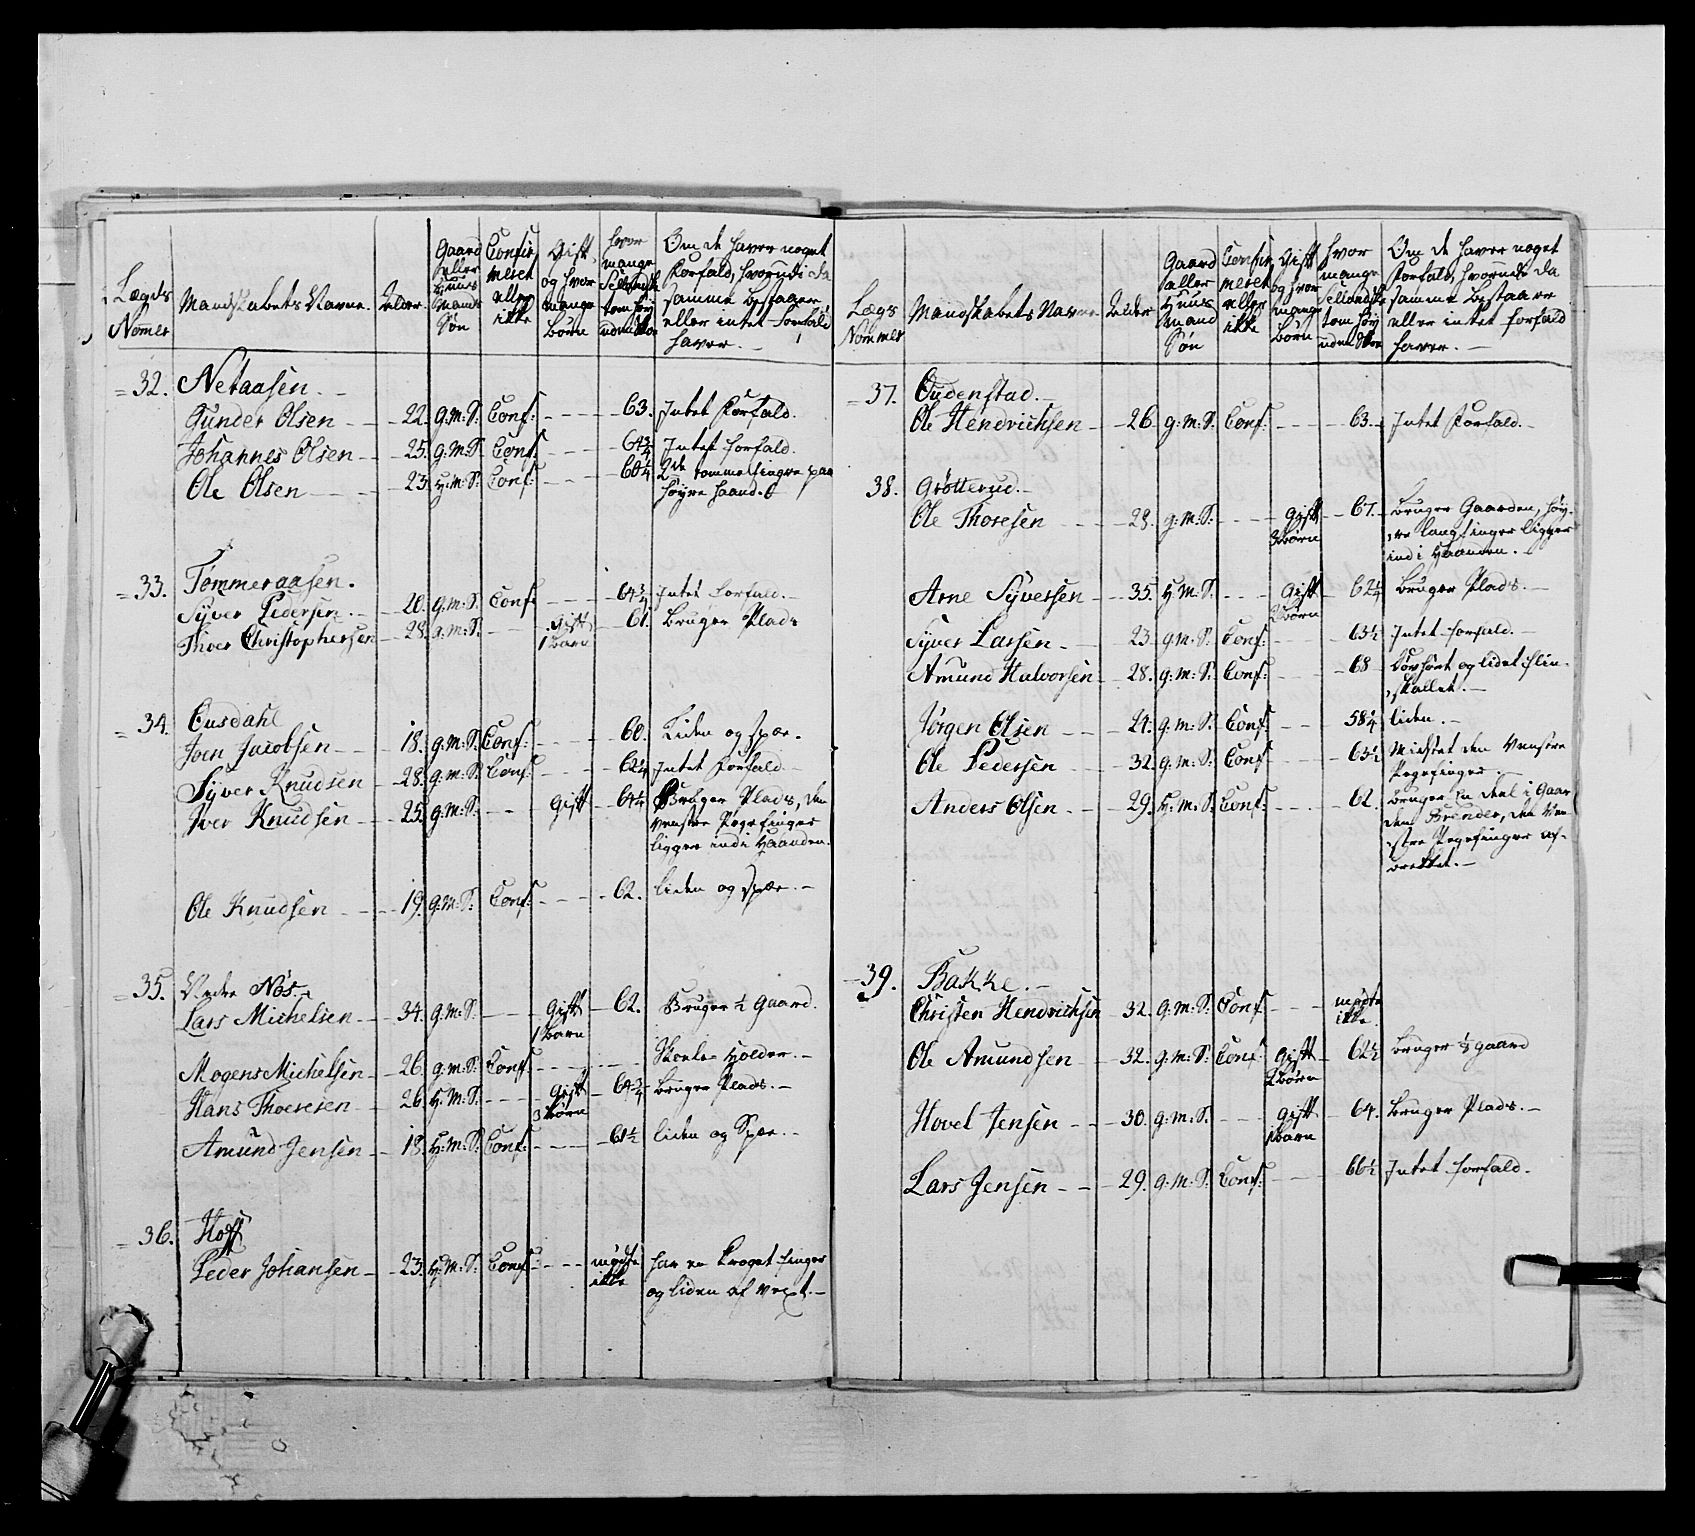 Lægds Nomer
Mandskabets Navne
Alder
Gaard eller Huus Mands Søn
Confirmeret eller ikke
Gift og hvor mange Børn
hvor mange Sellandske tom: høy uden Skoe
Om de haver noget Forfald, hvorudi da samme bestaaer eller intet forfald haver.
32. Netaasen
Gunder Olsen 22. g.m.S. Conf: 63. Intet Forfald.
Johannes Olsen 25. g.m.S. Conf: 64¾ Intet forfald.
Ole Olsen 23. H.m.S. Conf: 60¼ 2de tommelfingre paa
høyre haand.
33. Tømmeraasen.
Syver Pedersen 20. g.m.S. Conf: 64¾ Intet forfald.
Thoer Christophersen 28. g.m.S. Gift 61. Bruger Plads
1 barn
34. Eusdahl
Joen Jacobsen 18. g.m.S. Conf: 60. Liden og spæ.
Syver Knudsen 28. g.m.S. Conf: 62¼ Intet Forfald
Iver Knudsen 25. g.m.S. Gift 64¼ Bruger Plads, den
venstre Pegefinger
ligger ind i Haanden.
Ole Knudsen 19. g.m.S. Conf: 62. liden og spæ.
35. Nedre Nøs.
Lars Michelsen 34. g.m.S. Gift 62. Bruger ½ gaard.
1 barn
Mogens Michelsen 26. g.m.S. Conf: Skole Holder.
Hans Thoresen 26. H.m.S. Gift 64¾ bruger Plads.
3 børn
Amund Jensen 18. H.m.S. Conf: 61½ liden og Spæ.
36. Hoff
Peder Johansen 23. H.m.S. Conf: mødte ikke har en Kroget finger
og liden af vext.
Lægs Nommer
Mandskabets Navne
Alder
Gaard eller Huus Mand Søn
Confirmeret eller ikke
Gift og hvor mange Børn
hvor mange Sellandske tom: høy uden Skoe
Om de haver noget Forfald, hvorudi da samme bestaaer eller intet forfald haver.
37. Oudenstad.
Ole Hendrichsen 26 g.m.S. Conf: 63 Intet Forfald.
38. Grøtterud.
Ole Thoresen 28. g.m.S. Gift 67. bruger Gaarden, høy-
3 børn re langfinger ligger
ind i Haanden.
Arne Syversen 35. H.m.S. Gift 62¼ bruger Plads.
2 børn
Syver Larsen 23. g.m.S. Conf: 63½ Intet forfald.
Amund Halvorsen 28. g.m.S. Conf: 68 Døvhørt og lidet flin-
skallet.
Jørgen Olsen 24. g.m.S. Conf: 58¼ liden.
Ole Pedersen 32. g.m.S. Conf: 63½ Mistet den Venstre
Pegefinger
Anders Olsen 29. H.m.S. Conf: 62. bruger En deel i Gaar-
den Brender, den Ven-
stre Pegefinger
39. Bakke.
Christen Hendrichsen 32. g.m.S. Conf: mødte ikke
Ole Amundsen 32. g.m.S. Conf: Gift 62½ bruger ½ gaard
2 børn
Hovel Jensen 30. g.m.S. Gift 64. bruger Plads.
1 barn
Lars Jensen 29. g.m.S. Conf: 66½ Intet forfald.